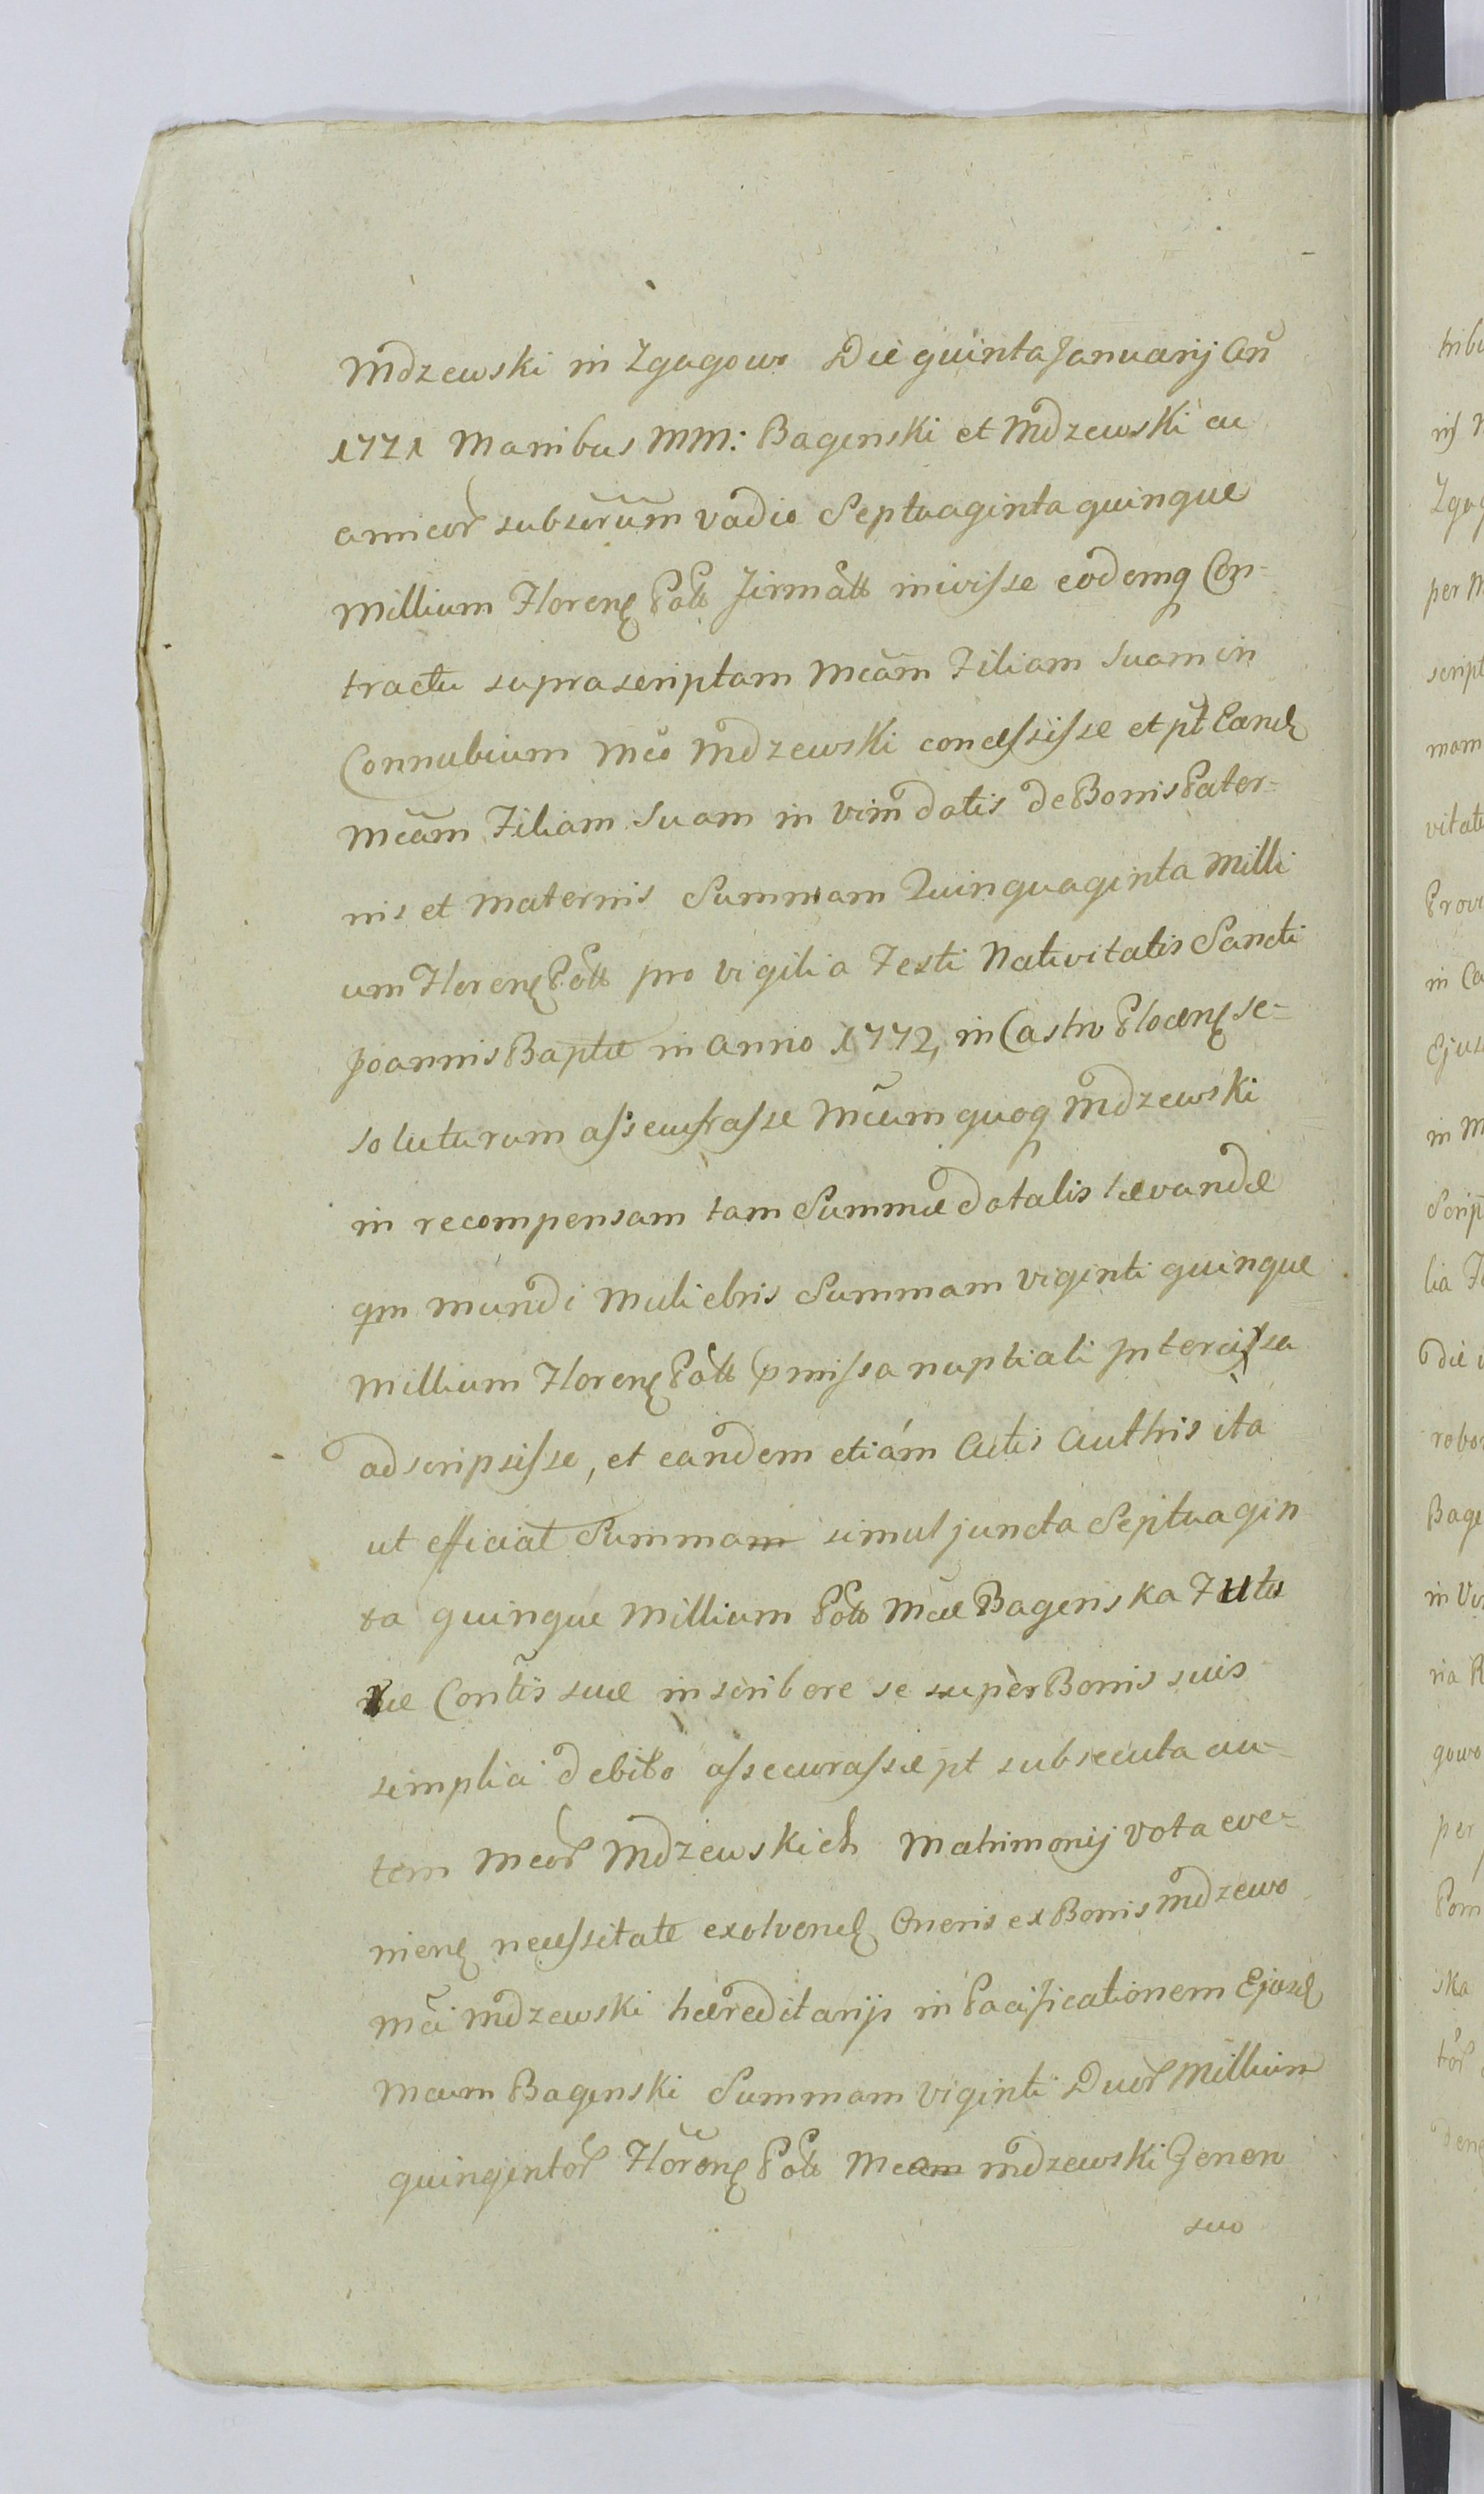 Mdzewski in Zgagowo Die quinta Januarij Añ
1771 Manibus MM: Bagenski et Mdzewski ac
amicor subscrum vadio Septuaginta quinque
Millium Floren Poll firmatt inivisse eodemq Con=
tractu suprascriptam Mcam Filiam Suam in
Connubium Mco Mdzewski concessisse et pt Eand
Mcam Filiam Suam in vim dotis de Bonis Pater=
nis et Maternis Summam Quinquaginta Milli
um Floren Poll pro vigilia Festi Nativitatis Sancti
Joannis Baptæ in Anno 1772, in Castro Plocen se=
soluturum assecurasse Mcum quoq Mdzewski
in recompensam tam Summæ dotalis levandæ
qm mundi Muliebris Summam viginti quinque
Millium Floren Poll pmissa nuptiali Intercisa
adscripsisse, et eandem etiám Actis Authis ita
ut efficiat Summam simul juncta Septuagin
ta quinque Millium Poll Mcæ Bagenska Futu
ræ Contis suæ inscribere se super Bonis suis
simplici debito assecurasse pt subsecuta au=
tem Mcor Mdzewskich Matrimonij vota eve=
nien necessitate exolvend Oneris ex Bonis Mdzewo
Mci Mdzewski hæreditarijs in Pacificationem Ejusd
Mcum Bagenski Summam viginti Duor Millium
quingentor Floren Poll Mcam Mdzewski Genero
suo